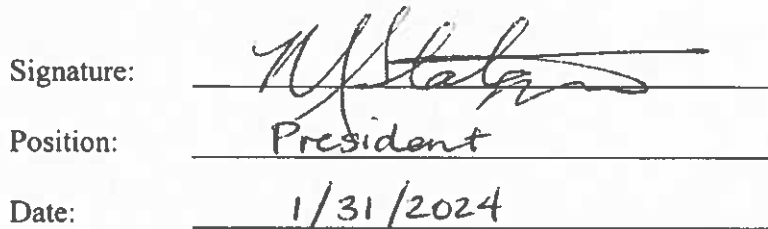 Signature:
Position: President
Date: 1/31/2024